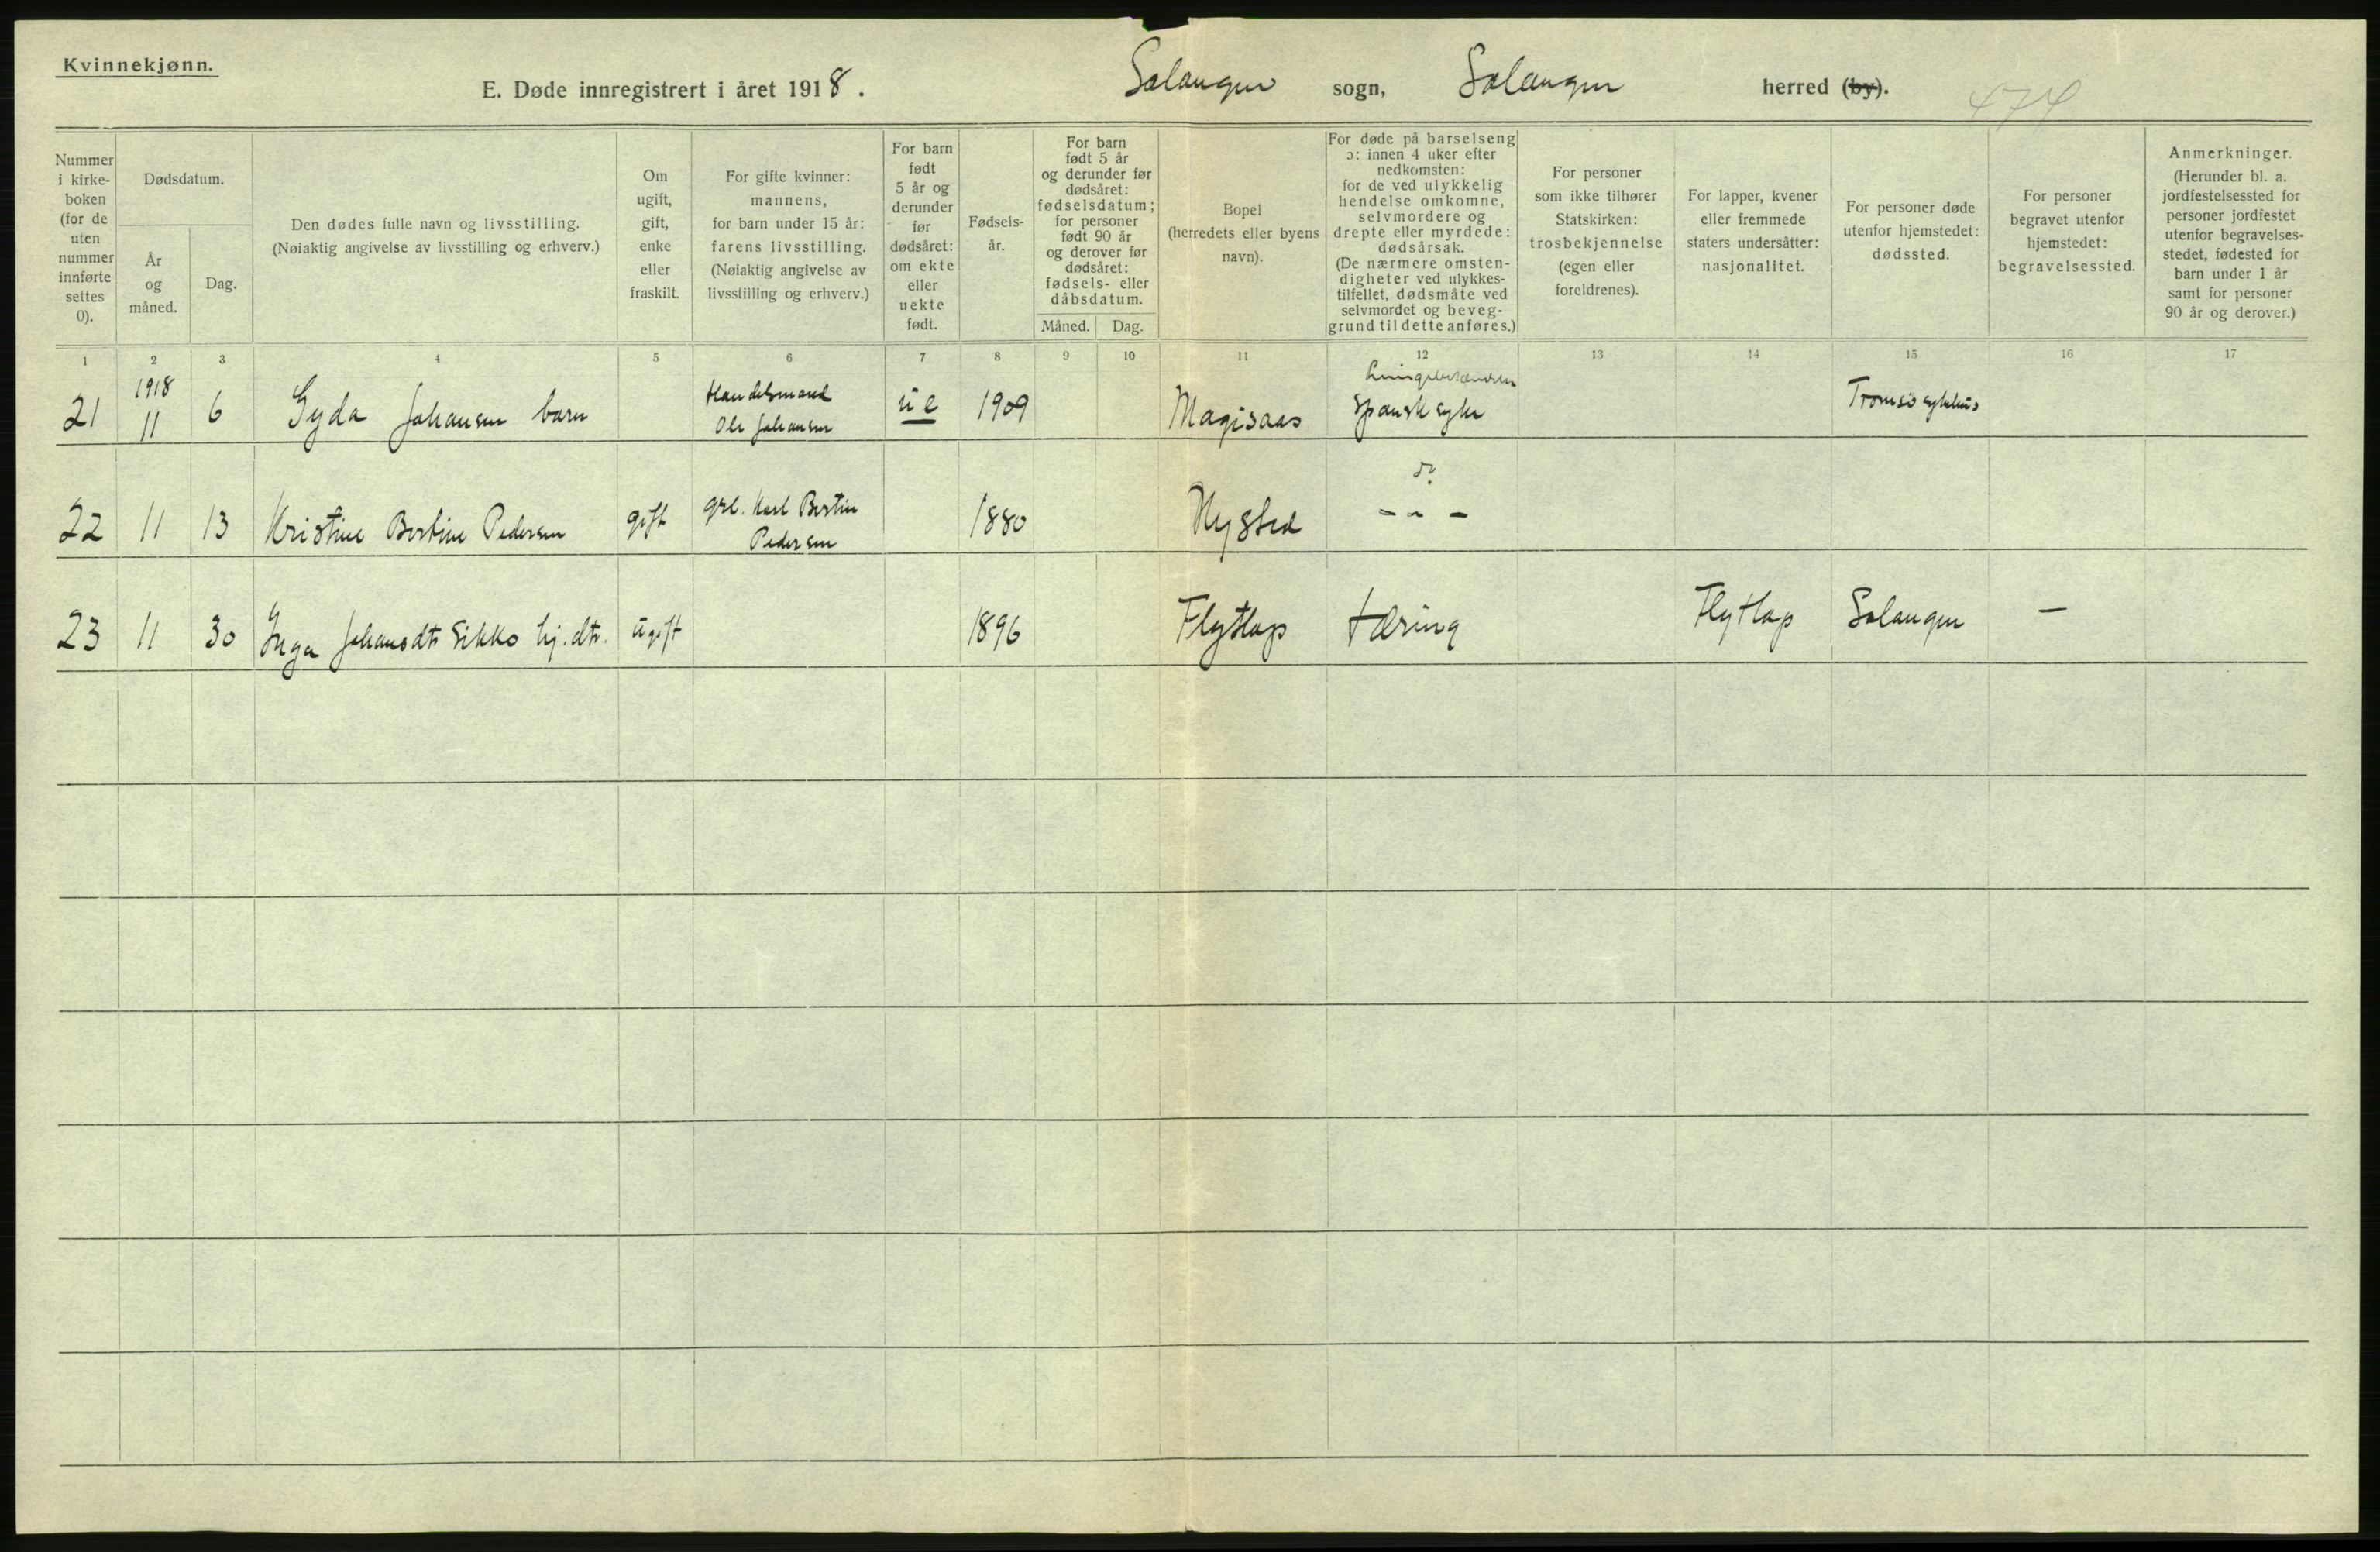 Kvinnekjønn.
E. Døde innregistrert i året 1918. Salangen sogn, Salangen herred (by).
474
Nummer i kirke-boken (for de uten nummer innførte settes 0).
Dødsdatum.
År og måned.
Dag.
Den dødes fulle navn og livsstilling.
(Nøiaktig angivelse av livsstilling og erhverv.)
Om ugift, gift, enke eller fraskilt.
For gifte kvinner: mannens, for barn under 15 år: farens livsstilling. (Nøiaktig angivelse av livsstilling og erhverv.)
For barn født 5 år og derunder før dødsåret: om ekte eller uekte født.
Fødsels-år.
For barn født 5 år og derunder før dødsåret: fødselsdatum; for personer født 90 år og derover før dødsåret: fødsels- eller dåbsdatum.
Måned.
Dag.
Bopel (herredets eller byens navn).
For døde på barselseng ɔ: innen 4 uker efter nedkomsten: for de ved ulykkelig hendelse omkomne, selvmordere og drepte eller myrdede: dødsårsak. (De nærmere omsten-digheter ved ulykkes-tilfellet, dødsmåte ved selvmordet og beveg-grund til dette anføres.)
For personer som ikke tilhører Statskirken: trosbekjennelse (egen eller foreldrenes).
For lapper, kvener eller fremmede staters undersåtter: nasjonalitet.
For personer døde utenfor hjemstedet: dødssted.
For personer begravet utenfor hjemstedet: begravelsessted.
Anmerkninger. (Herunder bl. a. jordfestelsessted for personer jordfestet utenfor begravelses-stedet, fødested for barn under 1 år samt for personer 90 år og derover.)
1 2 3 4 5 6 7 8 9 10 11 12 13 14 15 16 17
1918
21 11 6 Gyda Johansen barn Handelsmand Ole Johansen u e 1909 Magisaas spansk syke Tromsø sykehus
22 11 13 Kristine Bertine Pedersen gift Karl Bertin Pedersen 1880 Nysted do - - -
23 11 30 Inga Johansdtr Sikko hj. dtr. ugift 1896 Flytlap tæring Flytlap Salangen —